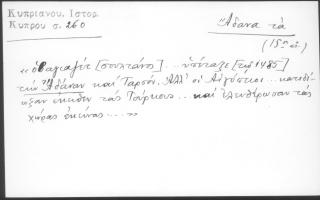 Κυπριανού, Ιστορ.
Κυπρου σ. 260
"Αδανα τα
(15ος αι.
"ὁ Βαγιαζὶτ [σουλτάνος] ... ὑπέταξε [τῷ 1485]
τὴν Ἄδαναν καὶ Ταρσόν. Ἀλλ' οἱ Αἰγύπτιοι ... κατεδί-
ωξαν ἐκεῖθεν τοὺς Τούρκους ... καὶ ἐλευθέρωσαν τὰς
χώρας ἐκείνας ..."